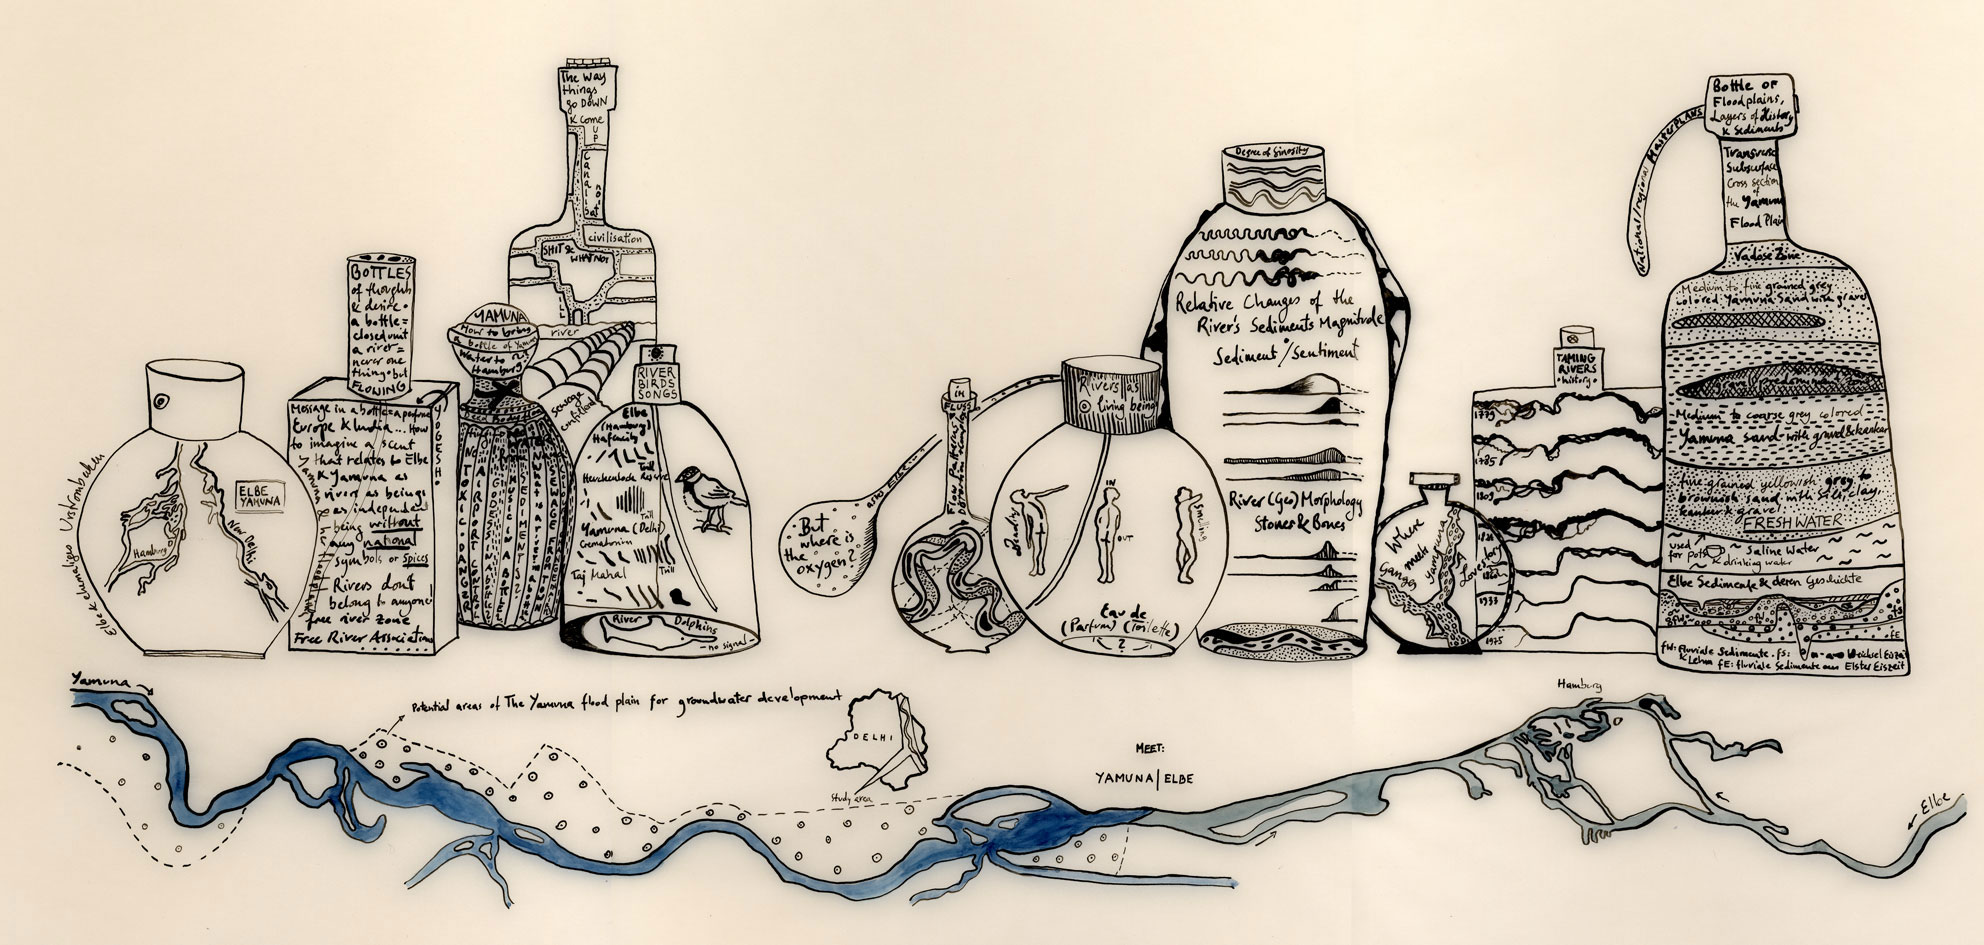 The way
things
go DOWN
& come
UP
Canal
not
civilisation
SHIT &
WHATNOT
river
BOTTLES
of thoughts
& desire.
a bottle =
closed unit
a river =
never one
thing but
FLOWING
YAMUNA
How to bring
a bottle of Yamuna
Water to
Hamburg
sewage
RIVER
BIRDS
SONGS
Elbe
(Hamburg)
Hafencity
Trill
Heuckenlock Reserve
Trill
Yamuna (Delhi)
Crematorium
Trill
Taj Mahal
River Dolphins
- no signal -
Elbe & ehemaliges Urstromtal
ELBE
YAMUNA
Hamburg
New Delhi
Message in a bottle = a perfume
Europe & India... How
to imagine a scent
that relates to Elbe
& Yamuna as
rivers as beings
as independent
being without
any national
symbols or spices
Rivers dont
belong to anyone
free river zone
Free River Association
YOGESH
TOXIC DANGER
AIRPORT CONTROL
But
where is
the
oxygen?
asks Elbe...
IM
FLUSS
Rivers as
living being
IN
OUT
Smelling
Eau de
(Parfum) (Toilette)
?
Degree of Sinosity
Relative Changes of the
River's Sediments Magnitude
Sediment/Sentiment
River (Geo) Morphology
Stones & Bones
Where
Ganga meets Yamuna
A Lovestory
TAMING
RIVERS
• history •
1779
1785
1809
1933
1975
National/regional Masterplans
Bottle of
Floodplains,
Layers of History
& Sediments
Transverse
Subsurface
Cross section
of
the Yamuna
Flood Plain
Vadose Zone
Medium to fine grained grey
colored Yamuna Sand with gravel
Medium to coarse grey colored
Yamuna sand with gravel & kankar
fine grained yellowish grey to
brownish sand with silt, clay,
kankar & gravel
FRESH WATER
used
for pots
Saline Water
& drinking water
Elbe Sedimente & deren Geschichte
fS
fE
fW: Fluviale Sedimente. fS: Weichsel Eiszeit
& Lehm fE: fluviale Sedimente aus Elster Eiszeit
Yamuna
Potential areas of The Yamuna flood plain for groundwater development
DELHI
Study area
MEET:
YAMUNA | ELBE
Hamburg
Elbe